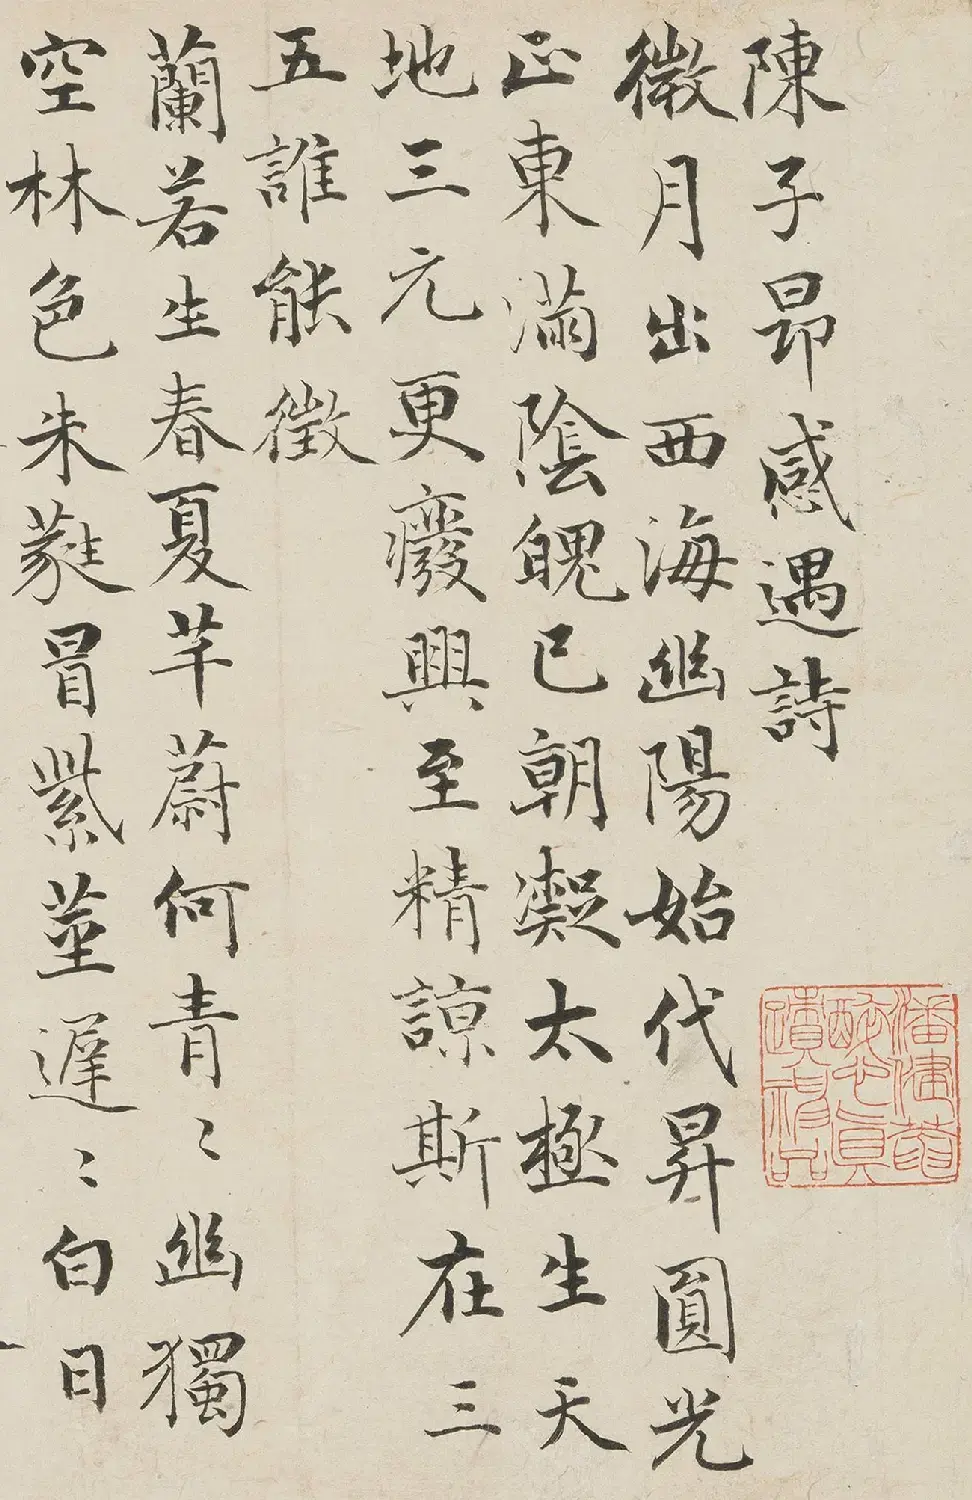 陳子昂感遇詩
微月出西海幽陽始代昇圓光
正東滿陰魄已朝凝太極生天
地三元更癈興至精諒斯在三
五誰能徵
蘭若生春夏芊蔚何青〻幽獨
空林色朱蕤冒紫莖遲〻白日